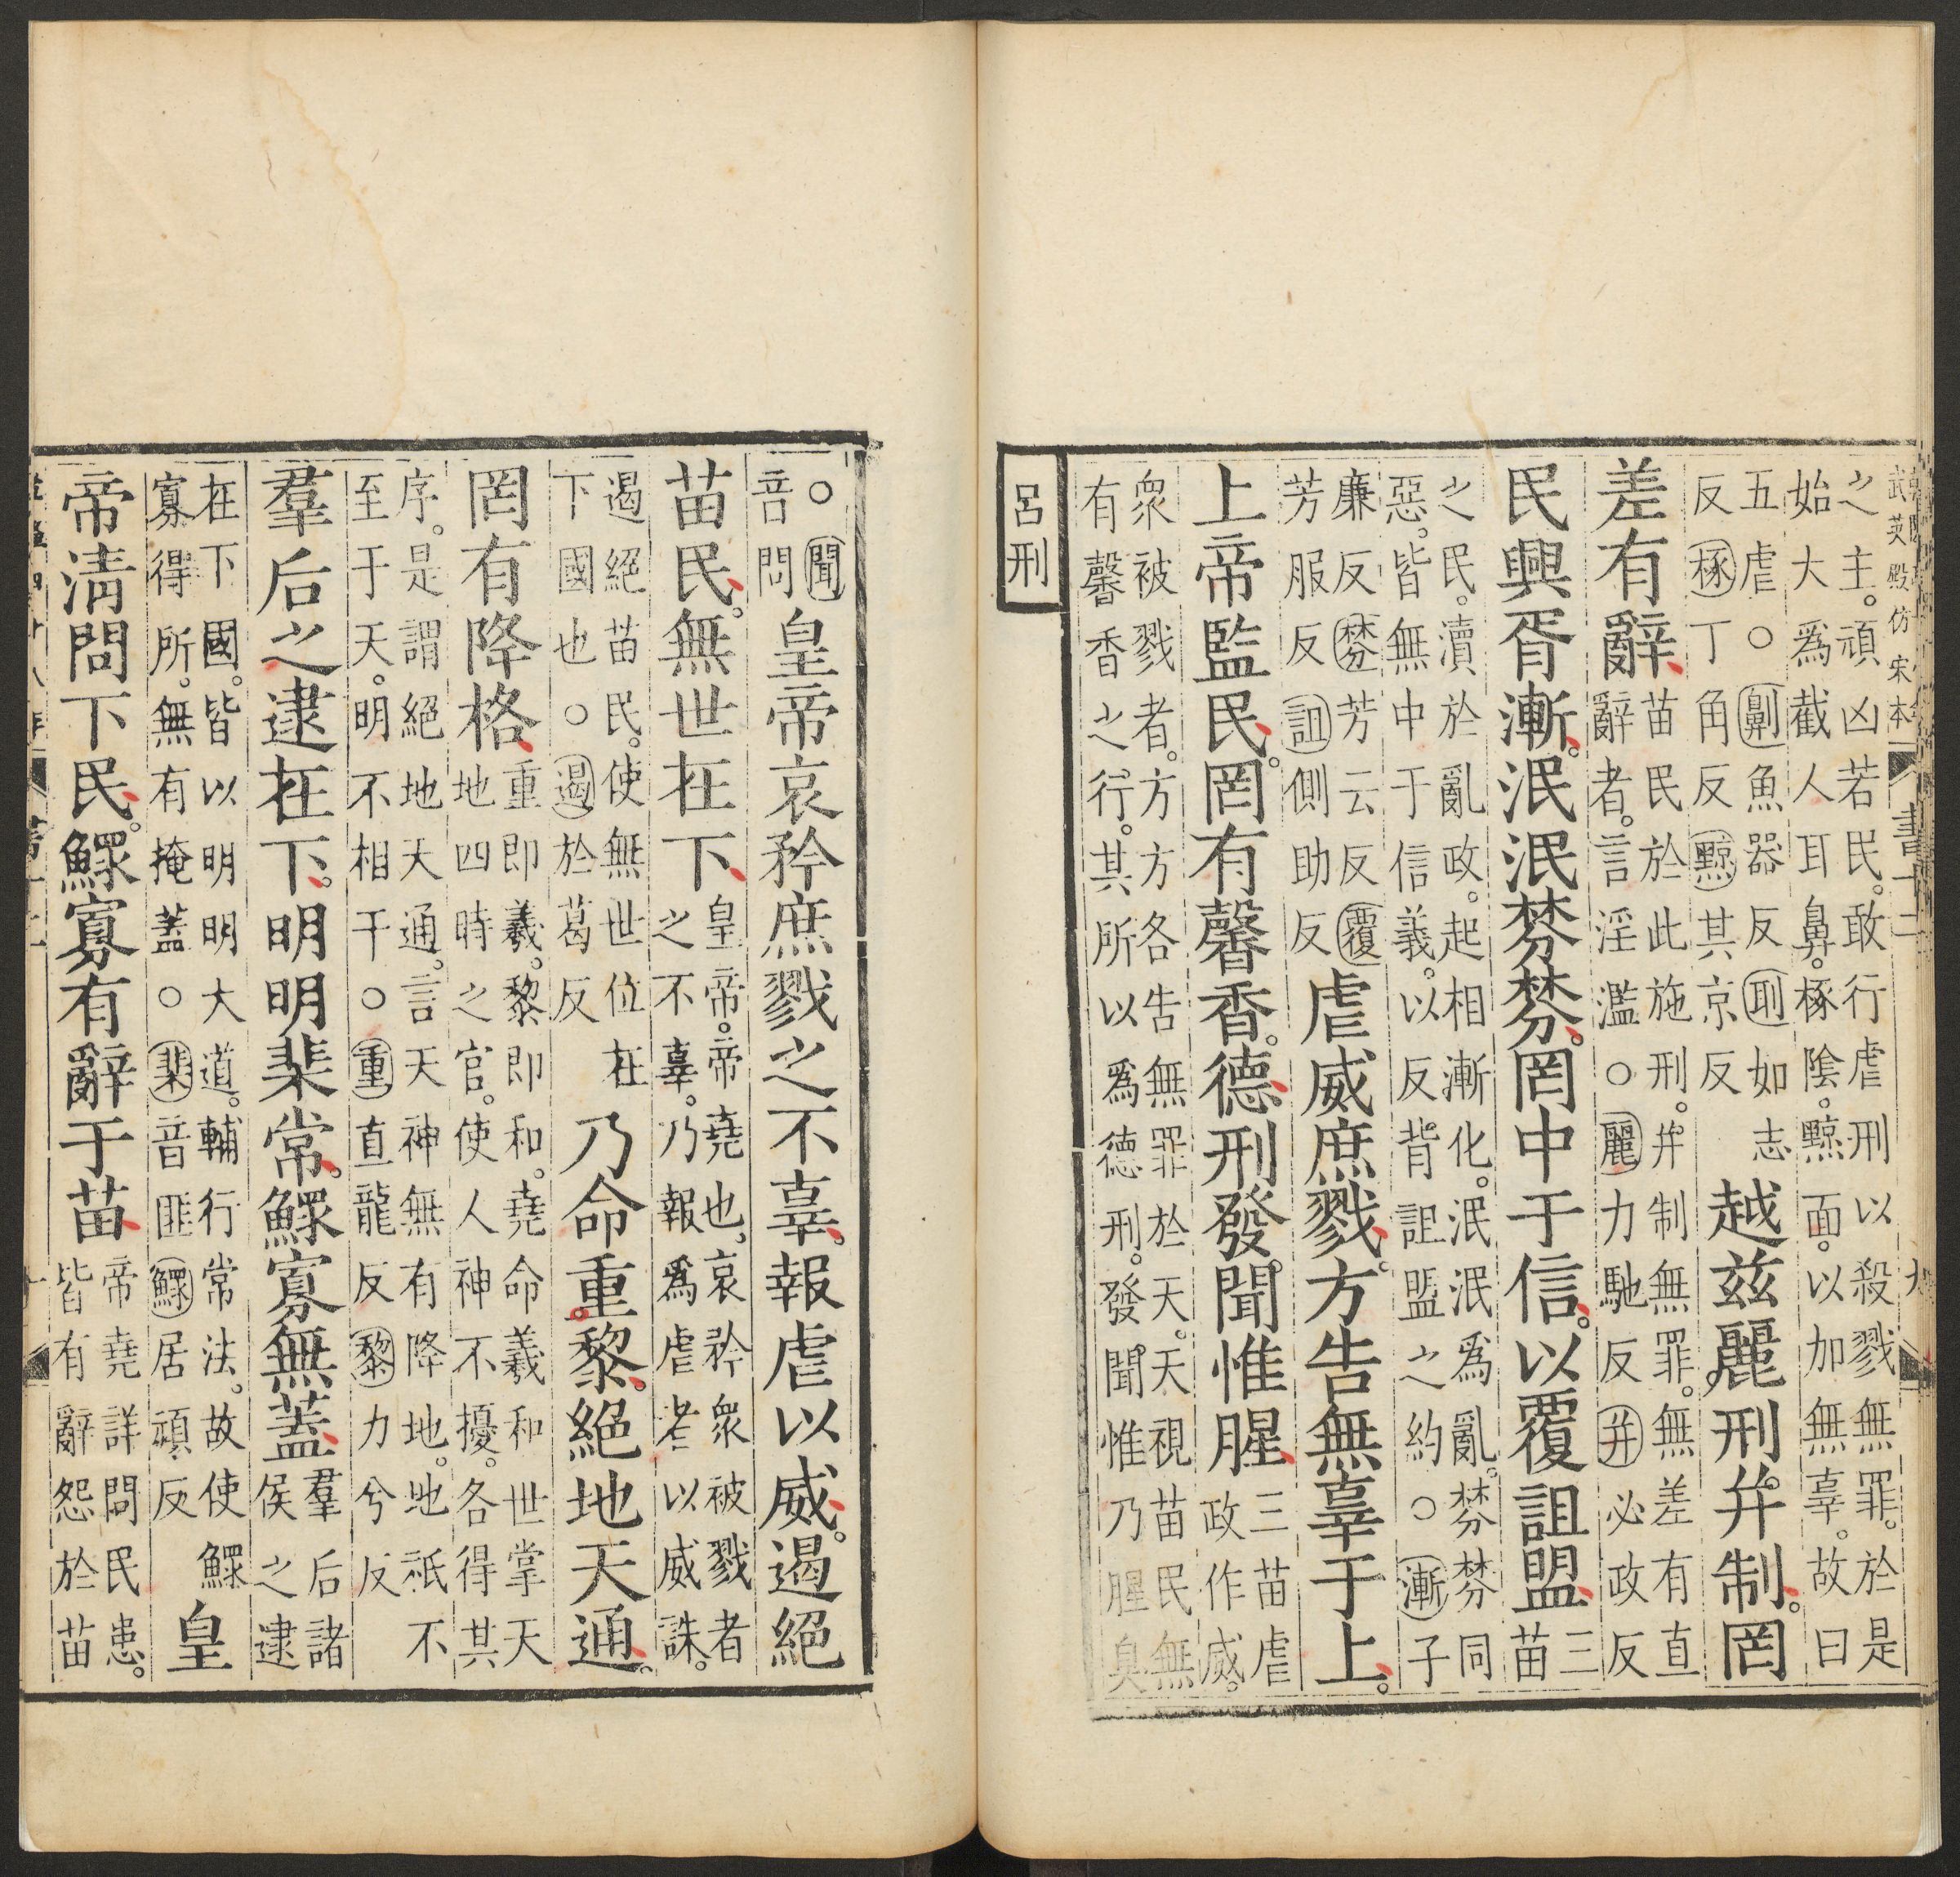 武英殿仿宋本
書十二
九
之主。頑凶若民。敢行虐刑以殺戮無罪。於是
始大爲截人耳鼻。椓陰。黥面。以加無辜。故曰
五虐○劓魚器反刵如志
反椓丁角反黥其京反
越茲麗刑。幷制。罔
差有辭。
苗民於此施刑。幷制無罪。無差有直
辭者。言淫濫○麗力馳反幷必政反
民興胥漸。泯泯棼棼。罔中于信。以覆詛盟。
三
苗
之民。瀆於亂政。起相漸化。泯泯爲亂。棼棼同
惡。皆無中于信義。以反背詛盟之約○漸子
廉反棼芳云反覆
芳服反詛側助反
虐威庶戮。方告無辜于上。
上帝監民。罔有馨香。德刑發聞惟腥。
三苗虐
政作威。
衆被戮者。方方各告無罪於天。天視苗民無
有馨香之行。其所以爲德刑。發聞惟乃腥臭
呂刑
○聞
音問
皇帝哀矜庶戮之不辜。報虐以威。遏絕
苗民。無世在下。
皇帝。帝堯也。哀矜衆被戮者
之不辜。乃報爲虐者以威誅。
遏絕苗民。使無世位在
下國也○遏於葛反
乃命重黎。絕地天通。
罔有降格。
重即羲。黎即和。堯命羲和世掌天
地四時之官。使人神不擾。各得其
序。是謂絕地天通。言天神無有降地。地祇不
至于天。明不相干○重直龍反黎力兮反
羣后之逮在下。明明棐常。鰥寡無蓋。
羣后諸
侯之逮
在下國。皆以明明大道。輔行常法。故使鰥
寡得所。無有掩蓋○棐音匪鰥居頑反
皇
帝清問下民。鰥寡有辭于苗。
帝堯詳問民患。
皆有辭怨於苗